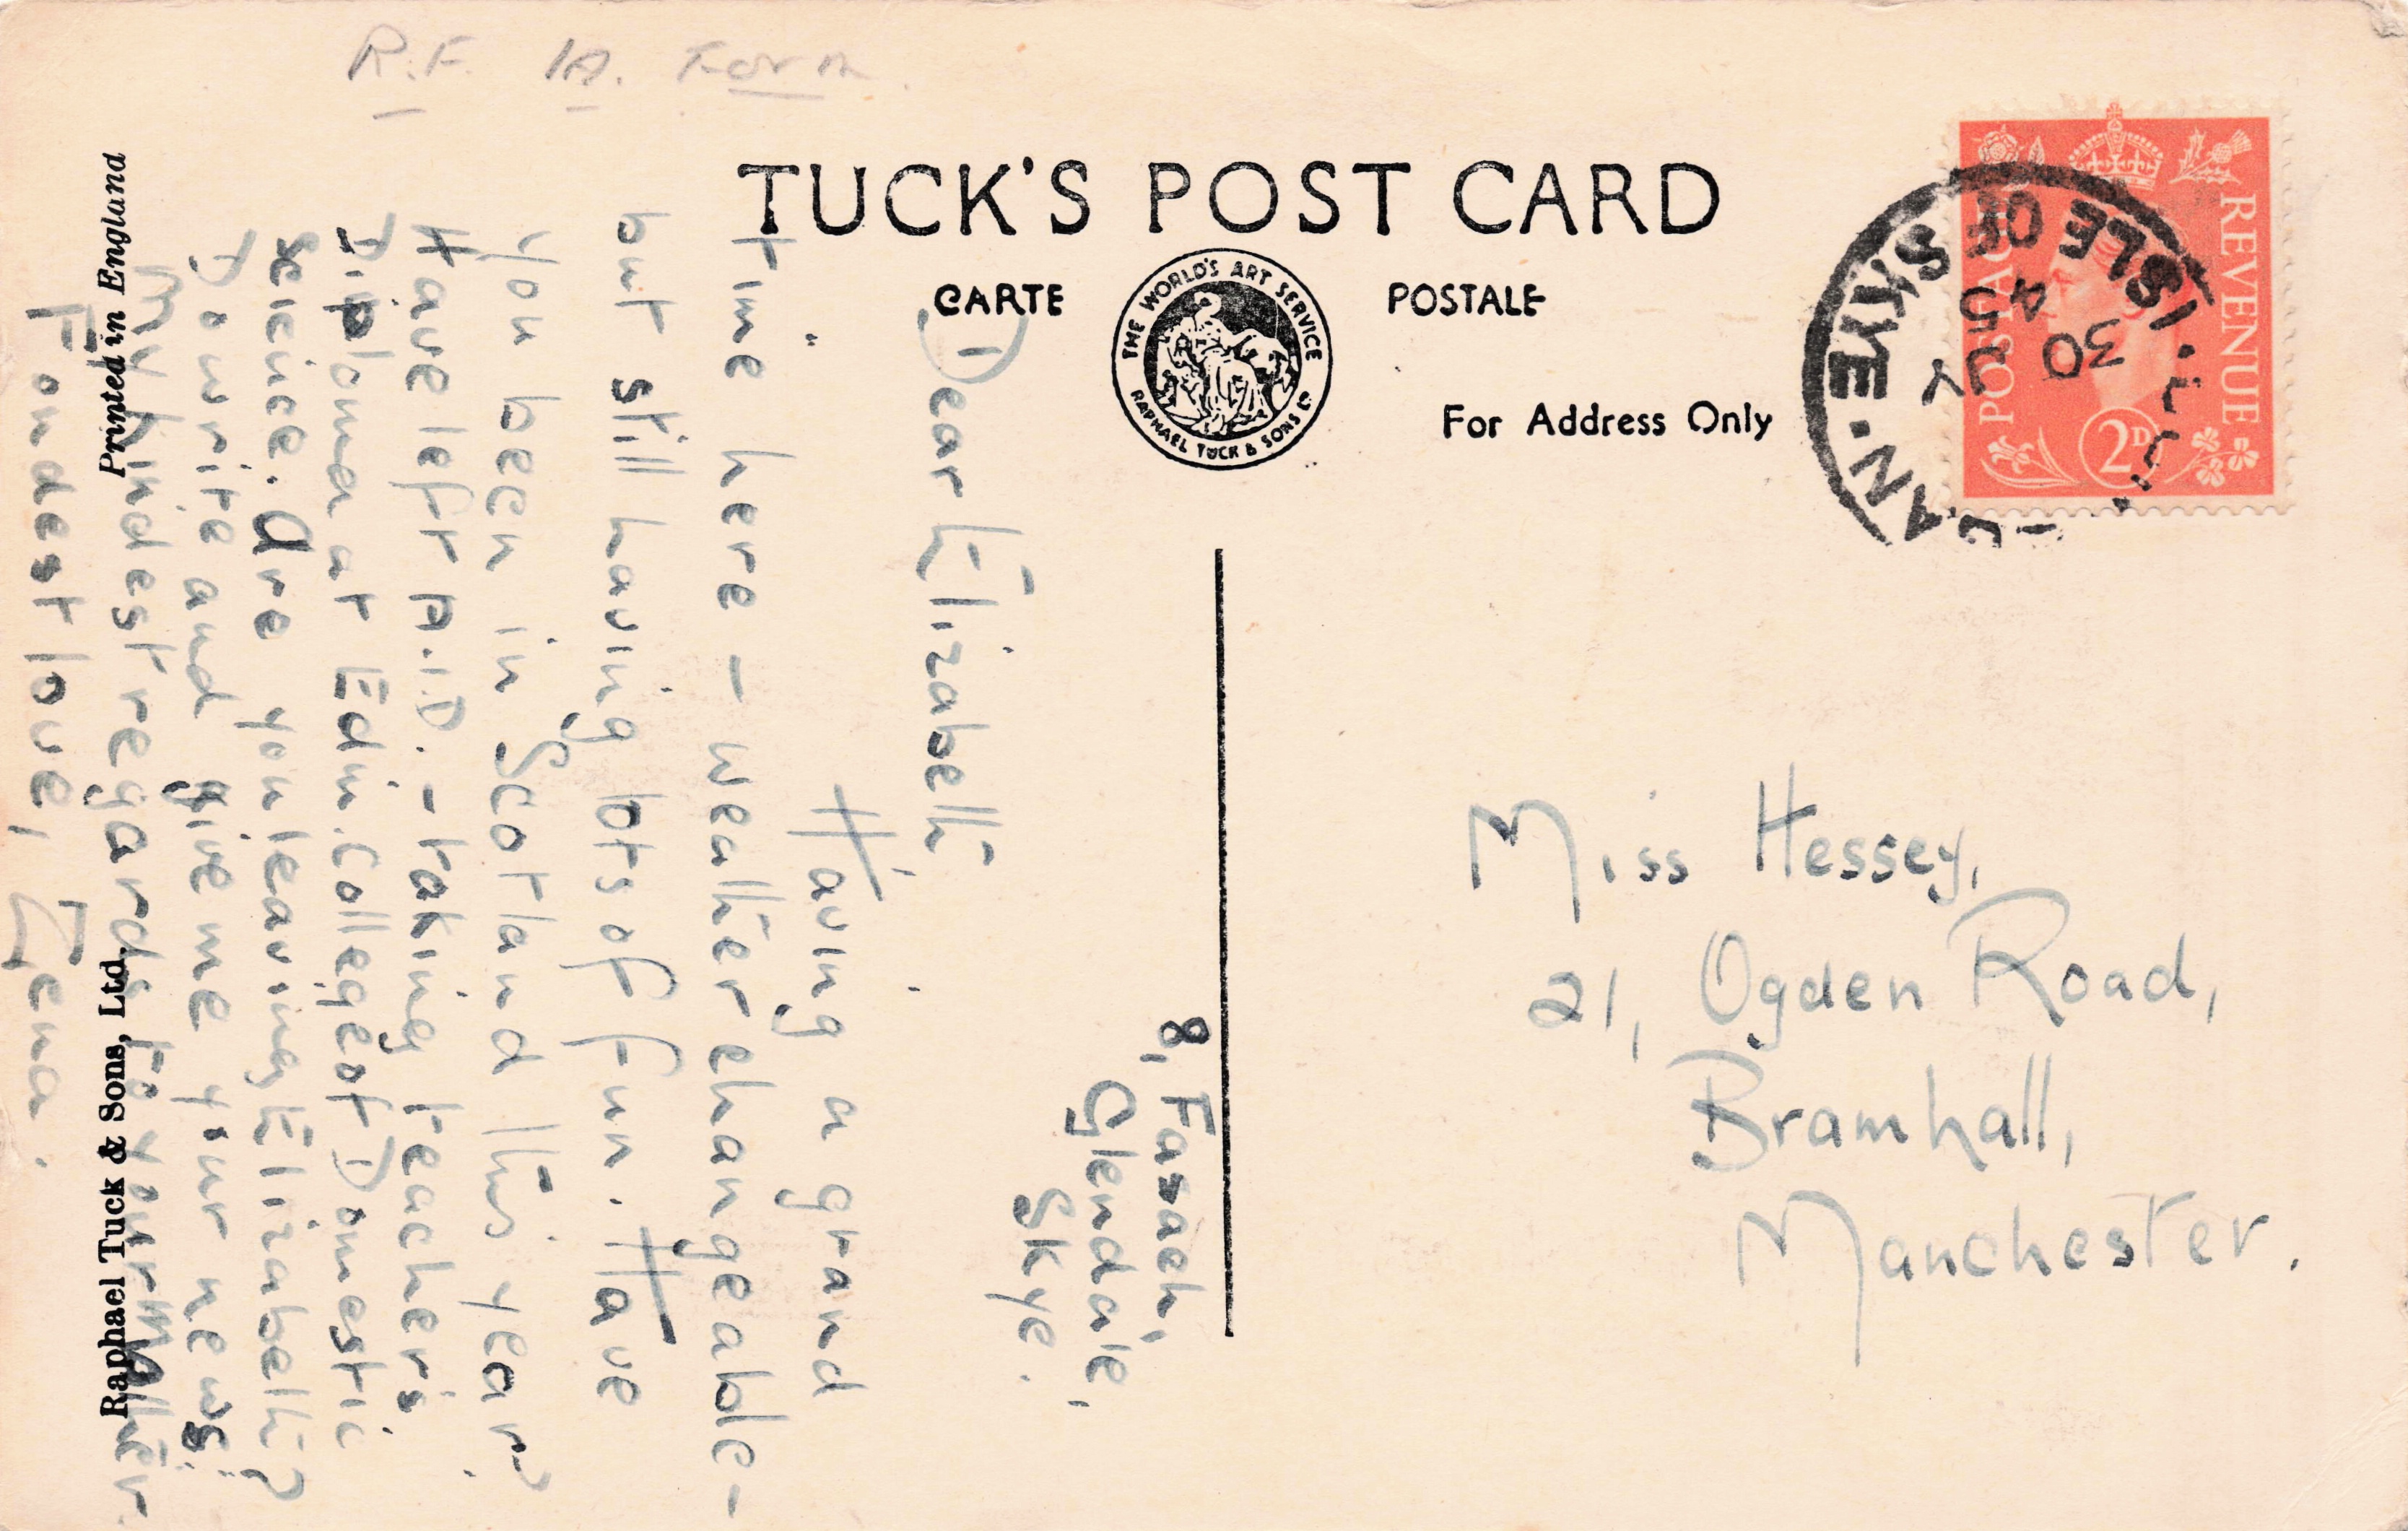 R.F. 1A. Form.
TUCK'S POST CARD
CARTE POSTALE
THE WORLD'S ART SERVICE
RAPHAEL TUCK & SONS LD
For Address Only
POSTAGE REVENUE
2D
ISLE OF SKYE
30
Printed in England
Raphael Tuck & Sons, Ltd.
8, Fasach,
Glendale,
Skye.
Dear Elizabeth
Having a grand
time here - weather changeable -
but still having lots of fun. Have
you been in Scotland this year?
Have left A.I.D. - taking teacher's
Diploma at Edin. College of Domestic
Science. Are you leaving Elizabeth?
Do write and give me your news.
My kindest regards to your Mother.
Fondest love, Zena.
Miss Hessey,
21, Ogden Road,
Bramhall,
Manchester.